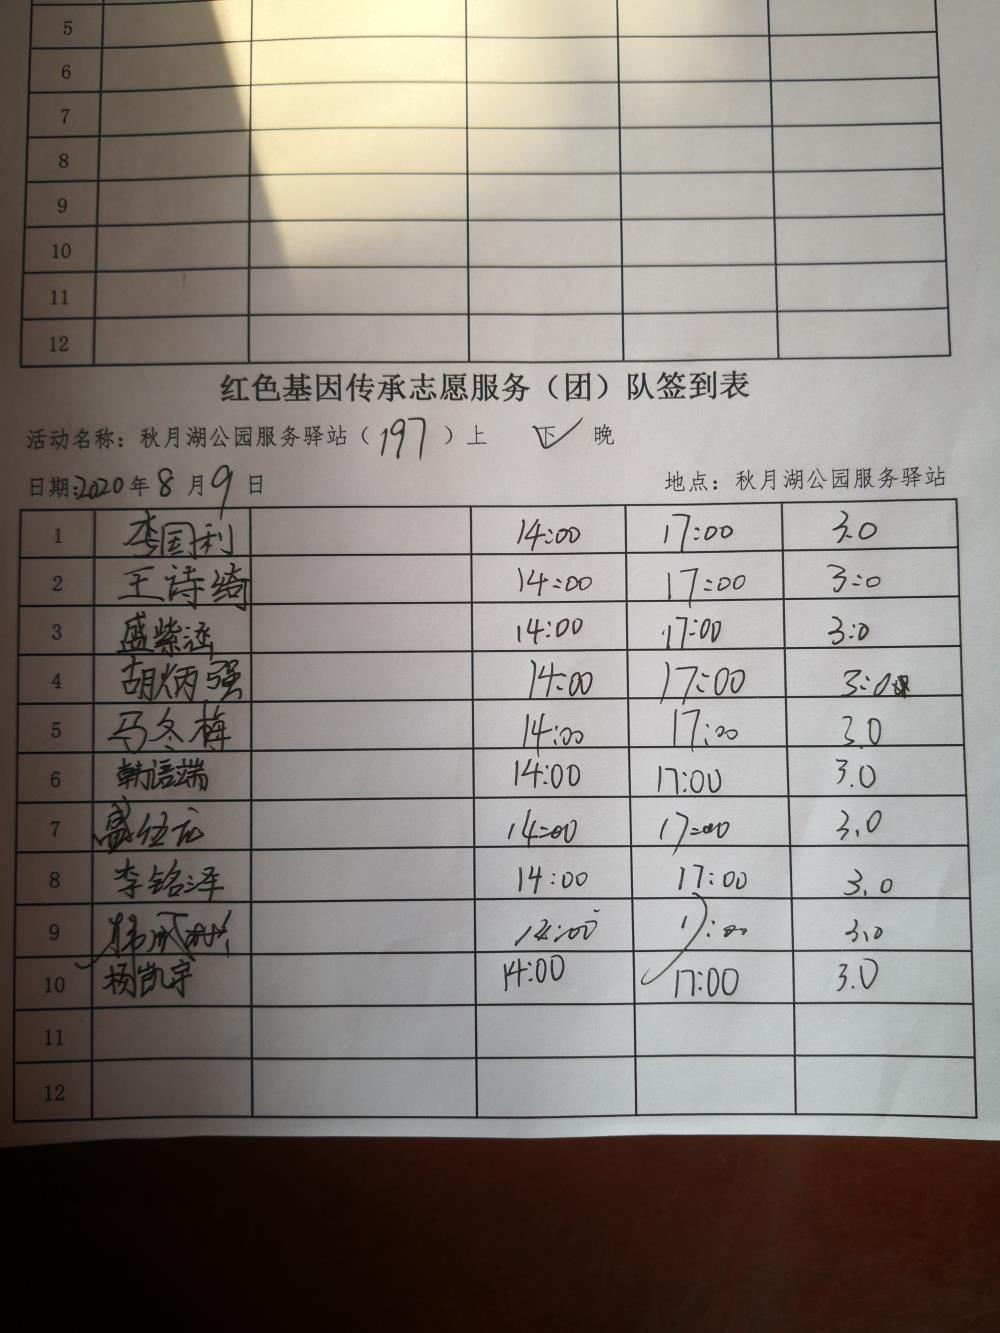 5
6
7
8
9
10
11
12
红色基因传承志愿服务（团）队签到表
活动名称：秋月湖公园服务驿站（197）上 下✓ 晚
日期:2020年8月9日 地点：秋月湖公园服务驿站
1 李国利 14:00 17:00 3.0
2 王诗绮 14:00 17:00 3:0
3 盛紫涵 14:00 17:00 3:0
4 胡炳强 14:00 17:00 3:0
5 马冬梅 14:00 17:00 3.0
6 韩语端 14:00 17:00 3.0
7 14:00 17:00 3.0
8 李铭泽 14:00 17:00 3.0
9 14:00 17:00 3.0
10 杨凯宇 14:00 17:00 3.0
11
12